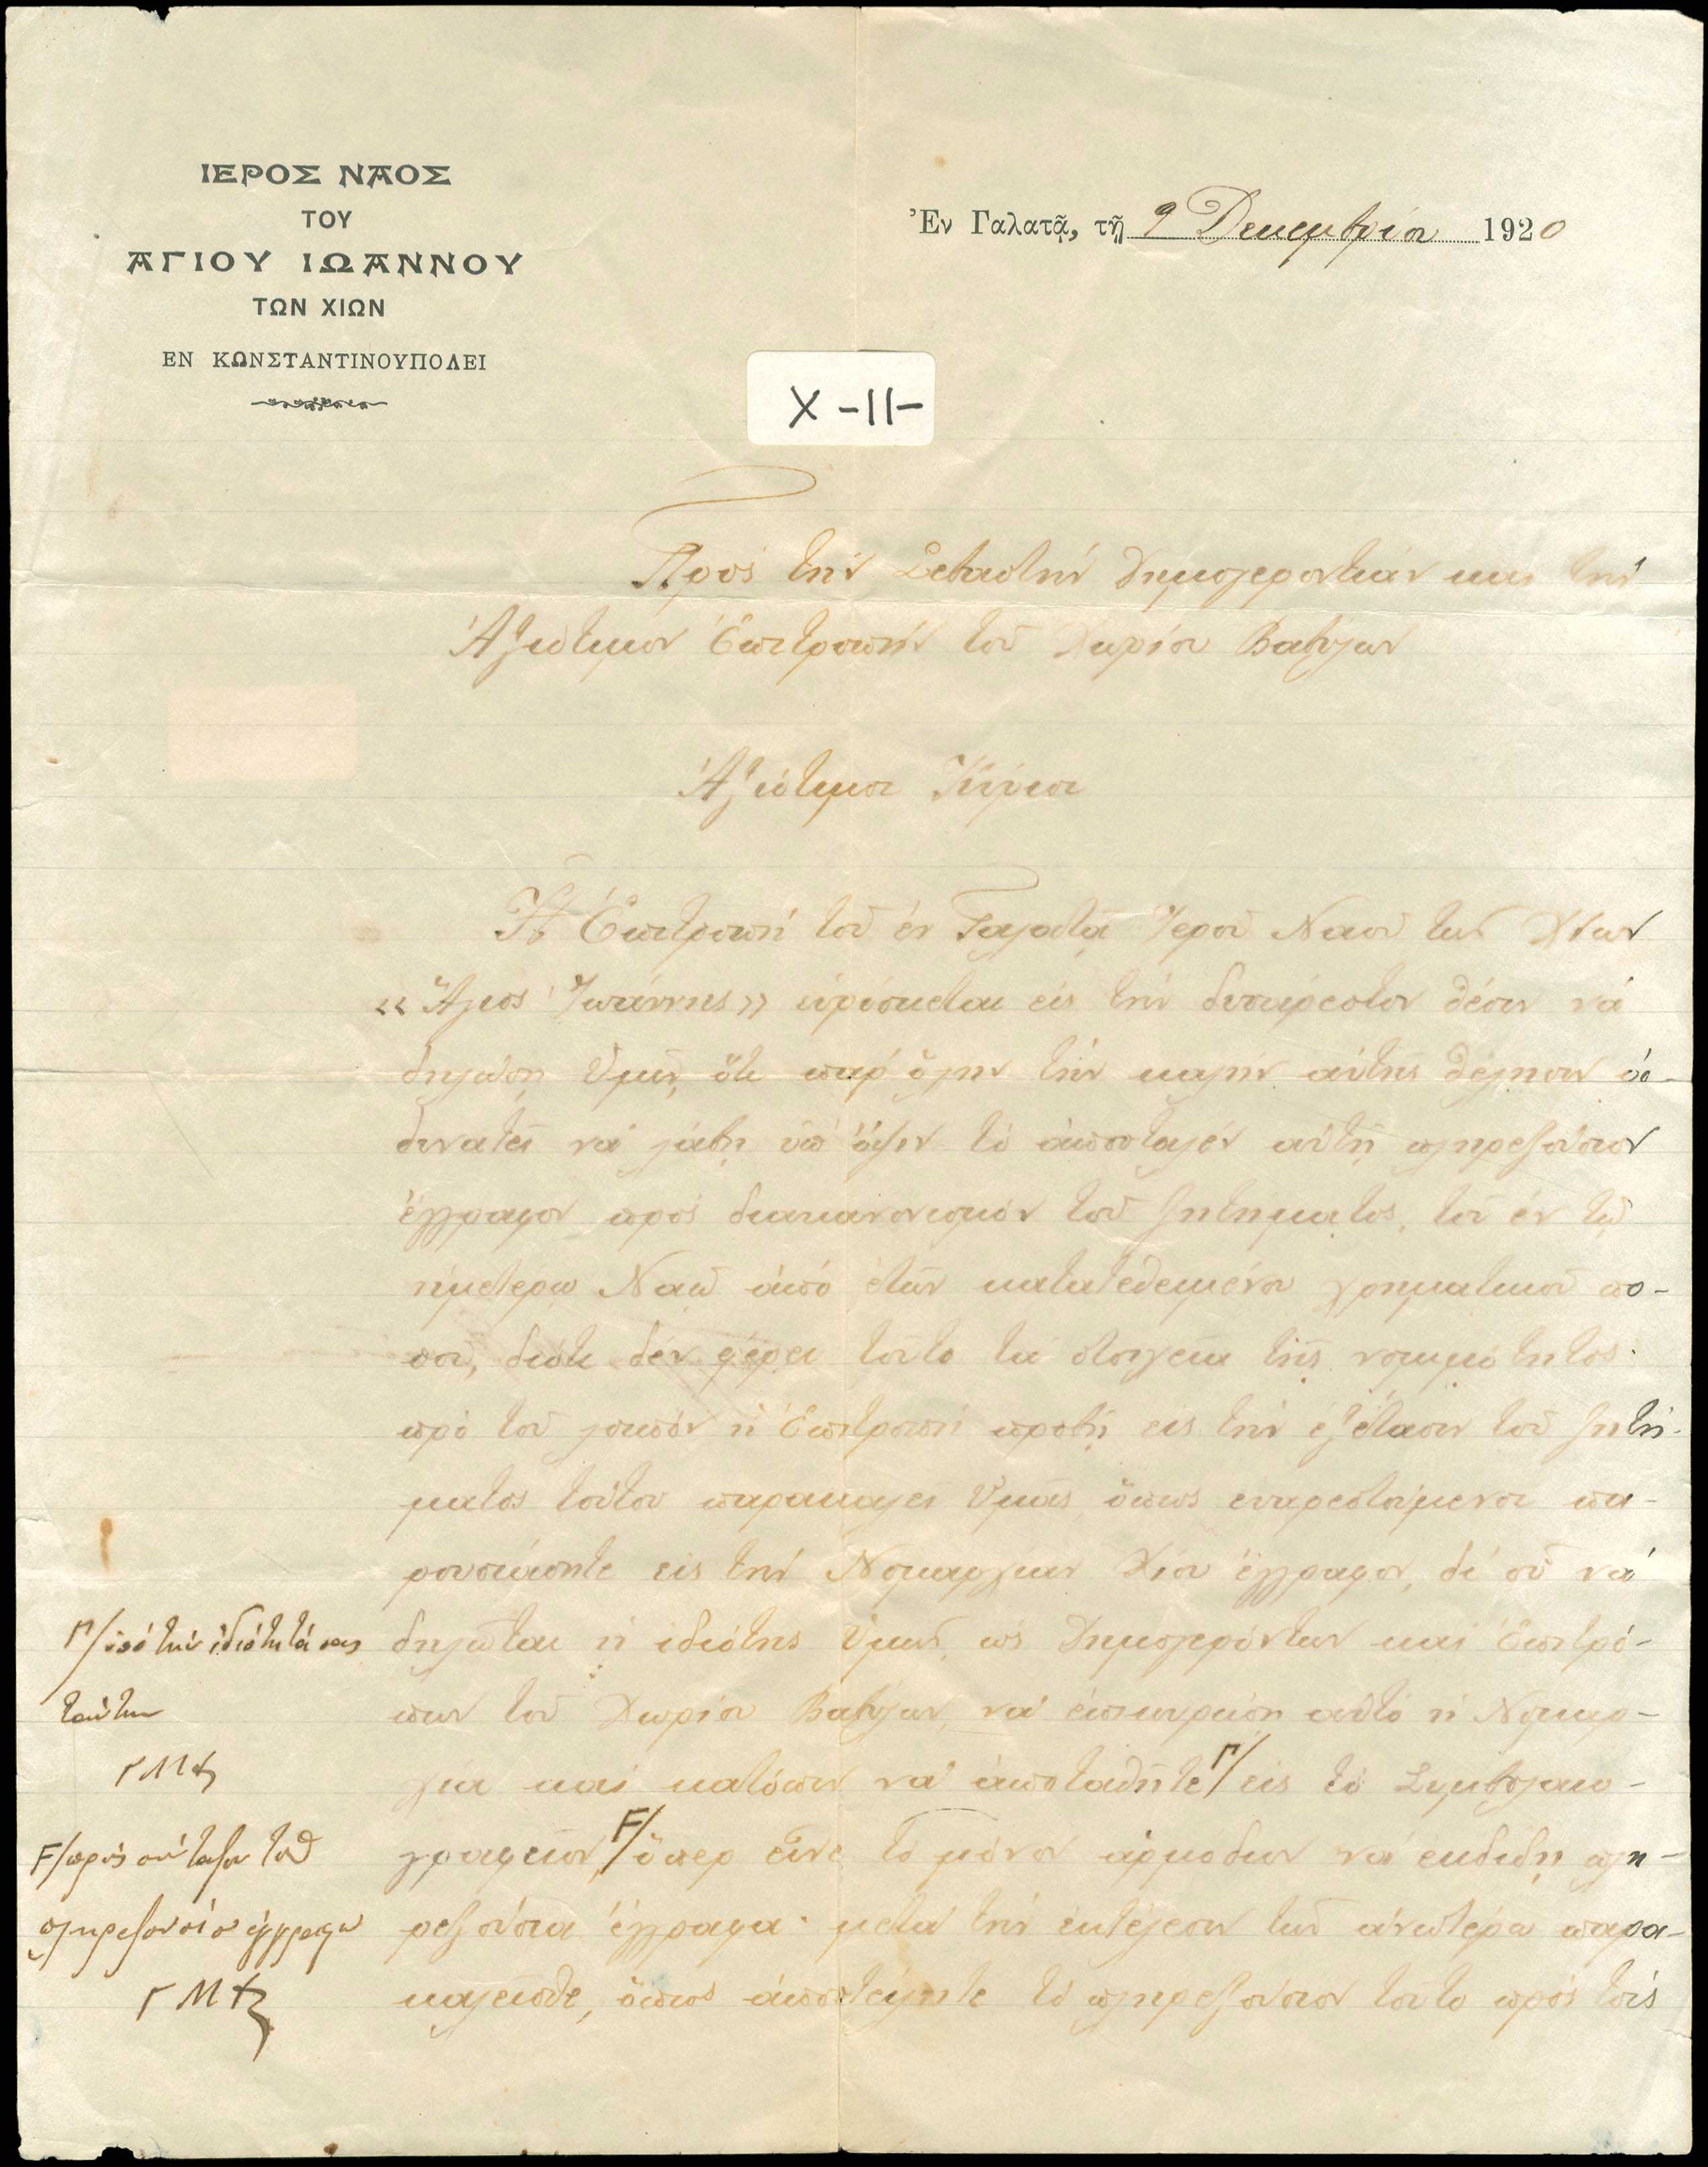 ΙΕΡΟΣ ΝΑΟΣ
ΤΟΥ
ΑΓΙΟΥ ΙΩΑΝΝΟΥ
ΤΩΝ ΧΙΩΝ
ΕΝ ΚΩΝΣΤΑΝΤΙΝΟΥΠΟΛΕΙ
Ἐν Γαλατᾷ, τῇ 9 Δεκεμβρίου 1920
X-11-
Πρὸς τὴν Σεβαστὴν Δημογεροντίαν καὶ τὴν
Ἀξιότιμον Ἐπιτροπὴν τοῦ Χωρίου Βαβύλων
Ἀξιότιμοι Κύριοι
Ἡ Ἐπιτροπὴ τοῦ ἐν Γαλατᾷ Ἱεροῦ Ναοῦ τῶν Χίων
«Ἅγιος Ἰωάννης» εὑρίσκεται εἰς τὴν δυσάρεστον θέσιν νὰ
δηλώσῃ Ὑμῖν, ὅτι παρ' ὅλην τὴν καλὴν αὐτῆς θέλησιν ἀ-
δυνατεῖ νὰ λάβῃ ὑπ' ὄψιν τὸ ἀποσταλὲν αὐτῇ πληρεξούσιον
ἔγγραφον πρὸς διακανονισμὸν τοῦ ζητήματος, τοῦ ἐν τῷ
ἡμετέρῳ Ναῷ ἀπὸ ἐτῶν κατατεθειμένου χρηματικοῦ πο-
σοῦ, διότι δὲν φέρει τοῦτο τὰ στοιχεῖα τῆς νομιμότητος·
πρὸ τοῦ λοιπὸν ἡ Ἐπιτροπὴ προβῇ εἰς τὴν ἐξέτασιν τοῦ ζητή-
ματος τούτου παρακαλεῖ Ὑμᾶς, ὅπως εὐαρεστούμενοι πα-
ρουσιάσητε εἰς τὴν Νομαρχίαν Χίου ἔγγραφον, δι' οὗ νὰ
δηλῶται ἡ ἰδιότης Ὑμῶν, ὡς Δημογερόντων καὶ Ἐπιτρό-
πων τοῦ Χωρίου Βαβύλων, νὰ ἐπικυρώσῃ αὐτὸ ἡ Νομαρ-
χία καὶ κατόπιν νὰ ἀποταθῆτε Γ/ εἰς τὸ Συμβολαιο-
γραφεῖον, F/ ὅπερ εἶνε τὸ μόνον ἁρμόδιον νὰ ἐκδίδῃ πλη-
ρεξούσια ἔγγραφα· μετὰ τὴν ἐκτέλεσιν τῶν ἀνωτέρω παρα-
καλεῖσθε, ὅπως ἀποστείλητε τὸ πληρεξούσιον τοῦτο πρὸς τοὺς
Γ/ ὑπὸ τὴν ἰδιότητά σας
ταύτην
F/ πρὸς σύνταξιν τοῦ
πληρεξουσίου ἐγγράφου